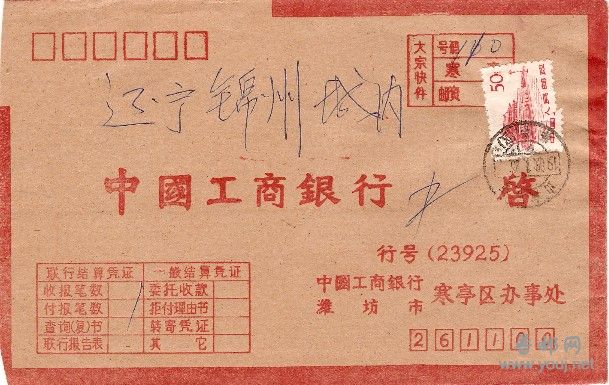 大宗快件
号码 110
寒
邮资
50分
辽宁锦州城内
中國工商銀行 办 啓
行号(23925)
联行结算凭证 一般结算凭证
收报笔数 1 委托收款
付报笔数 拒付理由书
查询(复)书 转寄凭证
联行报告表 其它
中國工商銀行
潍坊市 寒亭区办事处
261100
粤邮网
www.youj.net